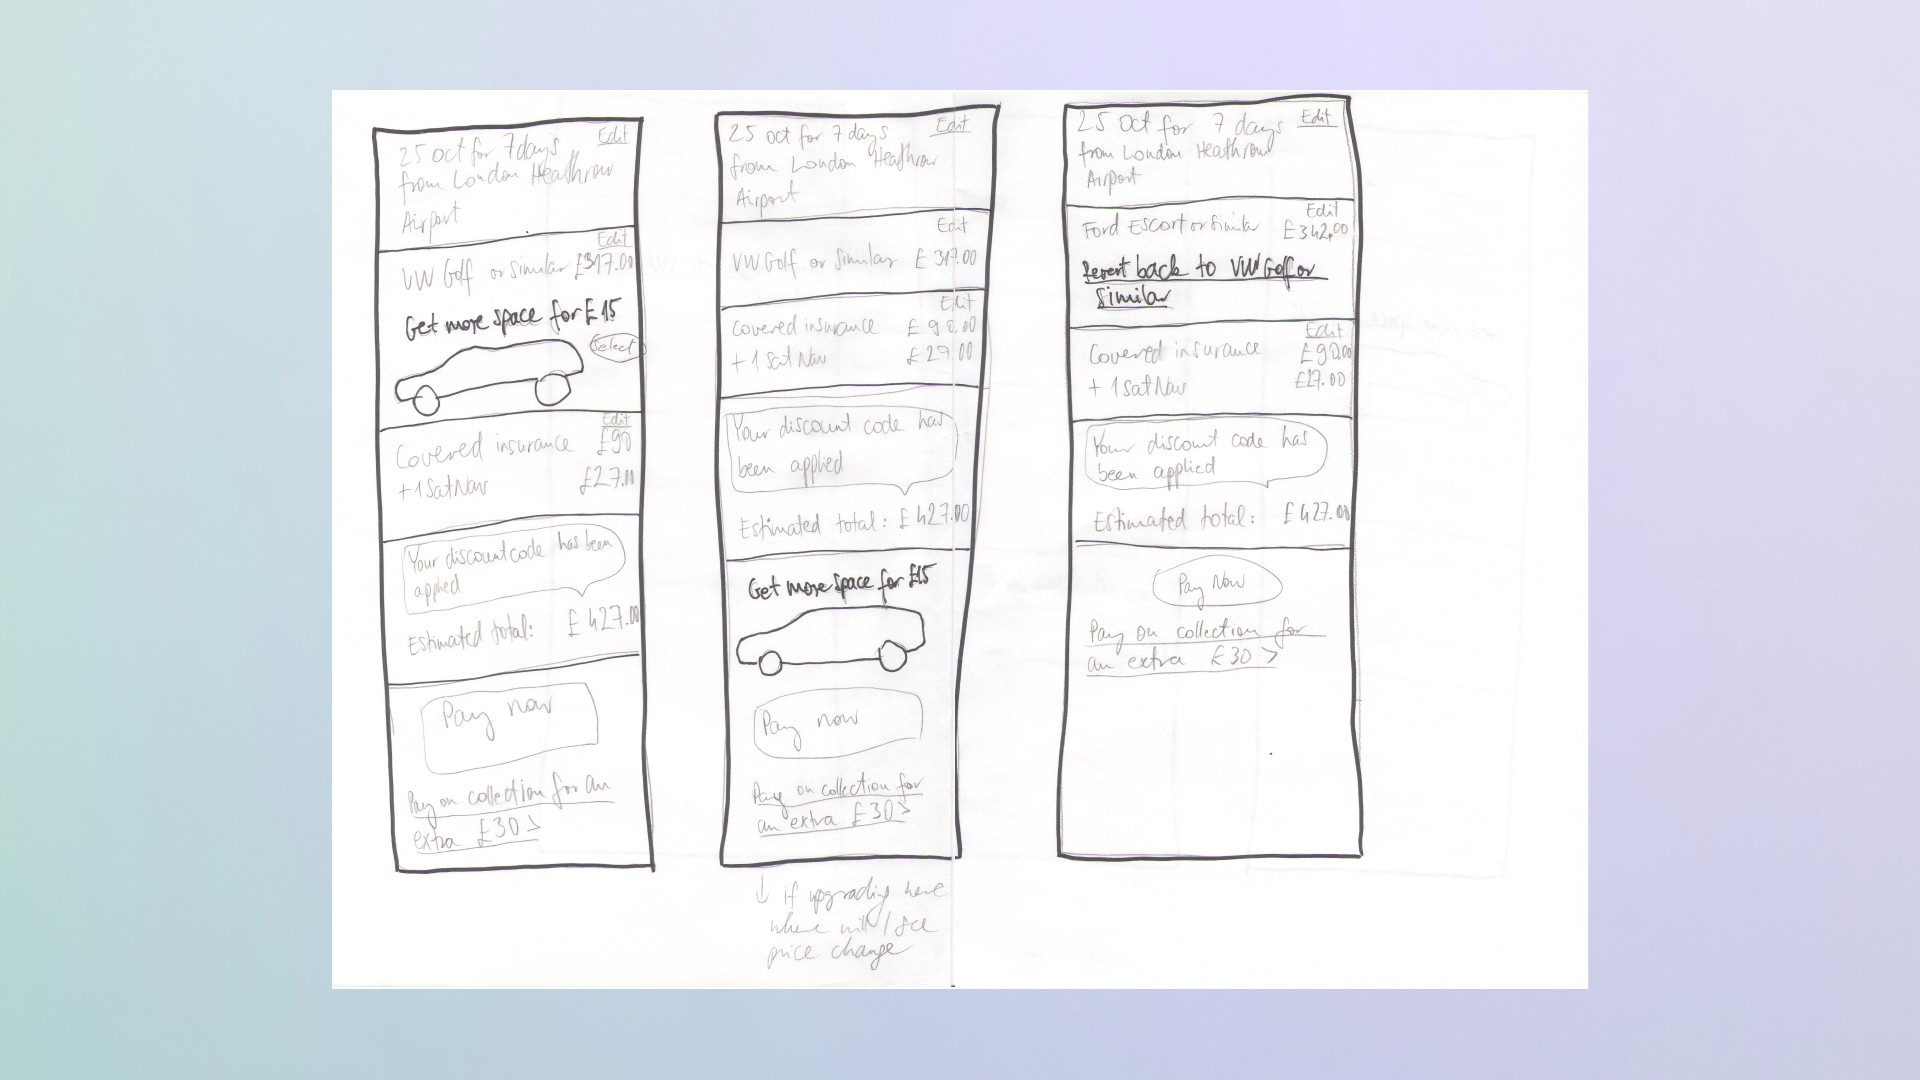 25 Oct for 7 days Edit
from London Heathrow
Airport
Edit
VW Golf or similar £317.00
Get more space for £15
Select
Edit
Covered insurance £90
+1 Sat Nav £27.00
Your discount code has been
applied
Estimated total: £427.00
Pay now
Pay on collection for an
extra £30 >
25 Oct for 7 days Edit
from London Heathrow
Airport
Edit
VW Golf or similar £317.00
Edit
Covered insurance £90.00
+ 1 Sat Nav £27.00
Your discount code has
been applied
Estimated total: £427.00
Get more space for £15
Pay now
Pay on collection for
an extra £30 >
↓ if upgrading here
where will I see
price change
25 Oct for 7 days Edit
from London Heathrow
Airport
Edit
Ford Escort or similar £342.00
Revert back to VW Golf or
Similar
Edit
Covered insurance £90.00
+ 1 Sat Nav £27.00
Your discount code has
been applied
Estimated total: £427.00
Pay Now
Pay on collection for
an extra £30 >